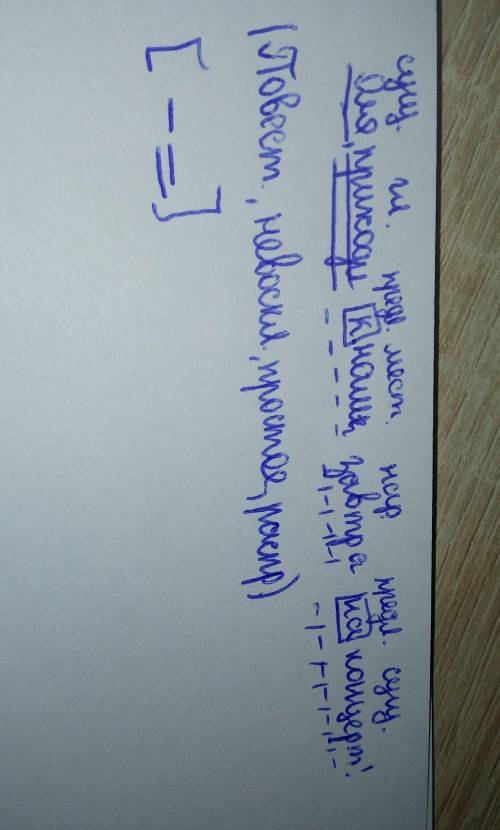 сущ. гл. предл. мест. нар. предл. сущ.
Оля, приходи к нам завтра на концерт.
(Повест., невоскл., простое, распр)
[ - = ]